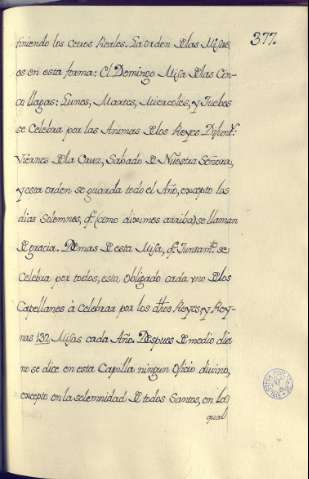 377.
tiniendo los Ceros Reales. La orden de las Misas
es en esta forma: el Domingo Misa de las Cin-
co llagas: Lunes, Martes, Miercoles, y Jueves
se Celebra por las Animas de los Reyes Difunt.s
Viernes de la Cruz, Sabado de Nuestra Señora,
y esta orden se guarda todo el Año, excepto los
días Solemnes, q.e (como diximos arriba) se llaman
de gracia. Demas de esta Misa, q.e Juntam.te se
Celebra por todos, esta obligado cada uno de los
Capellanes à Celebrar por los dhos Reyes y Rey-
nas 132 Misas cada Año. Despues de medio dia
no se dice en esta Capilla ningun Oficio divino,
excepto en la solemnidad de todos Santos, en la
qual